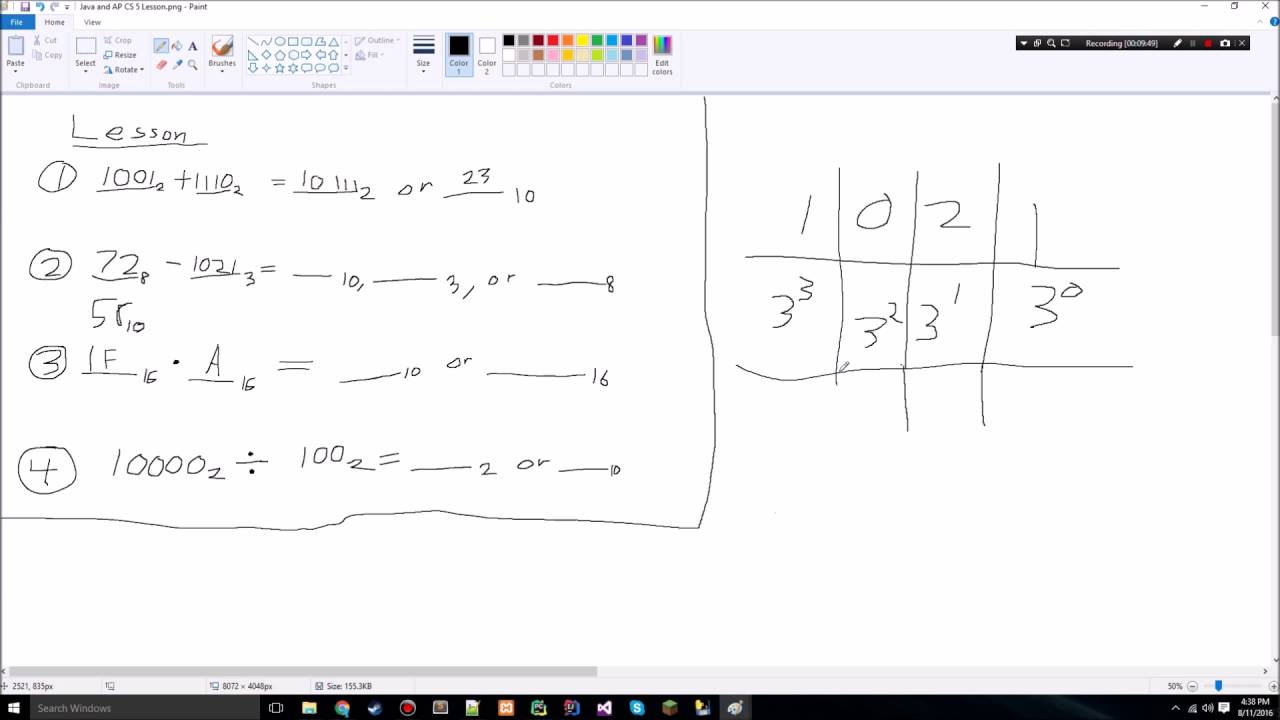 Java and AP CS 5 Lesson.png - Paint
File Home View
Paste Cut Copy Clipboard
Select Crop Resize Rotate Image
Tools
Brushes
Shapes Outline Fill
Size
Color 1 Color 2 Colors Edit colors
Recording [00:09:49]
Lesson
① 1001₂ + 1110₂ = 10111₂ or 23 10
② 72₈ - 1021₃ = ___ 10, ___ 3, or ___ 8
58₁₀
③ 1F 16 · A 16 = ___ 10 or ___ 16
④ 10000₂ ÷ 100₂ = ___ 2 or ___ 10
1 0 2 1
3³ 3² 3¹ 3⁰
2521, 835px 8072 × 4048px Size: 155.3KB 50%
Search Windows
4:38 PM
8/11/2016